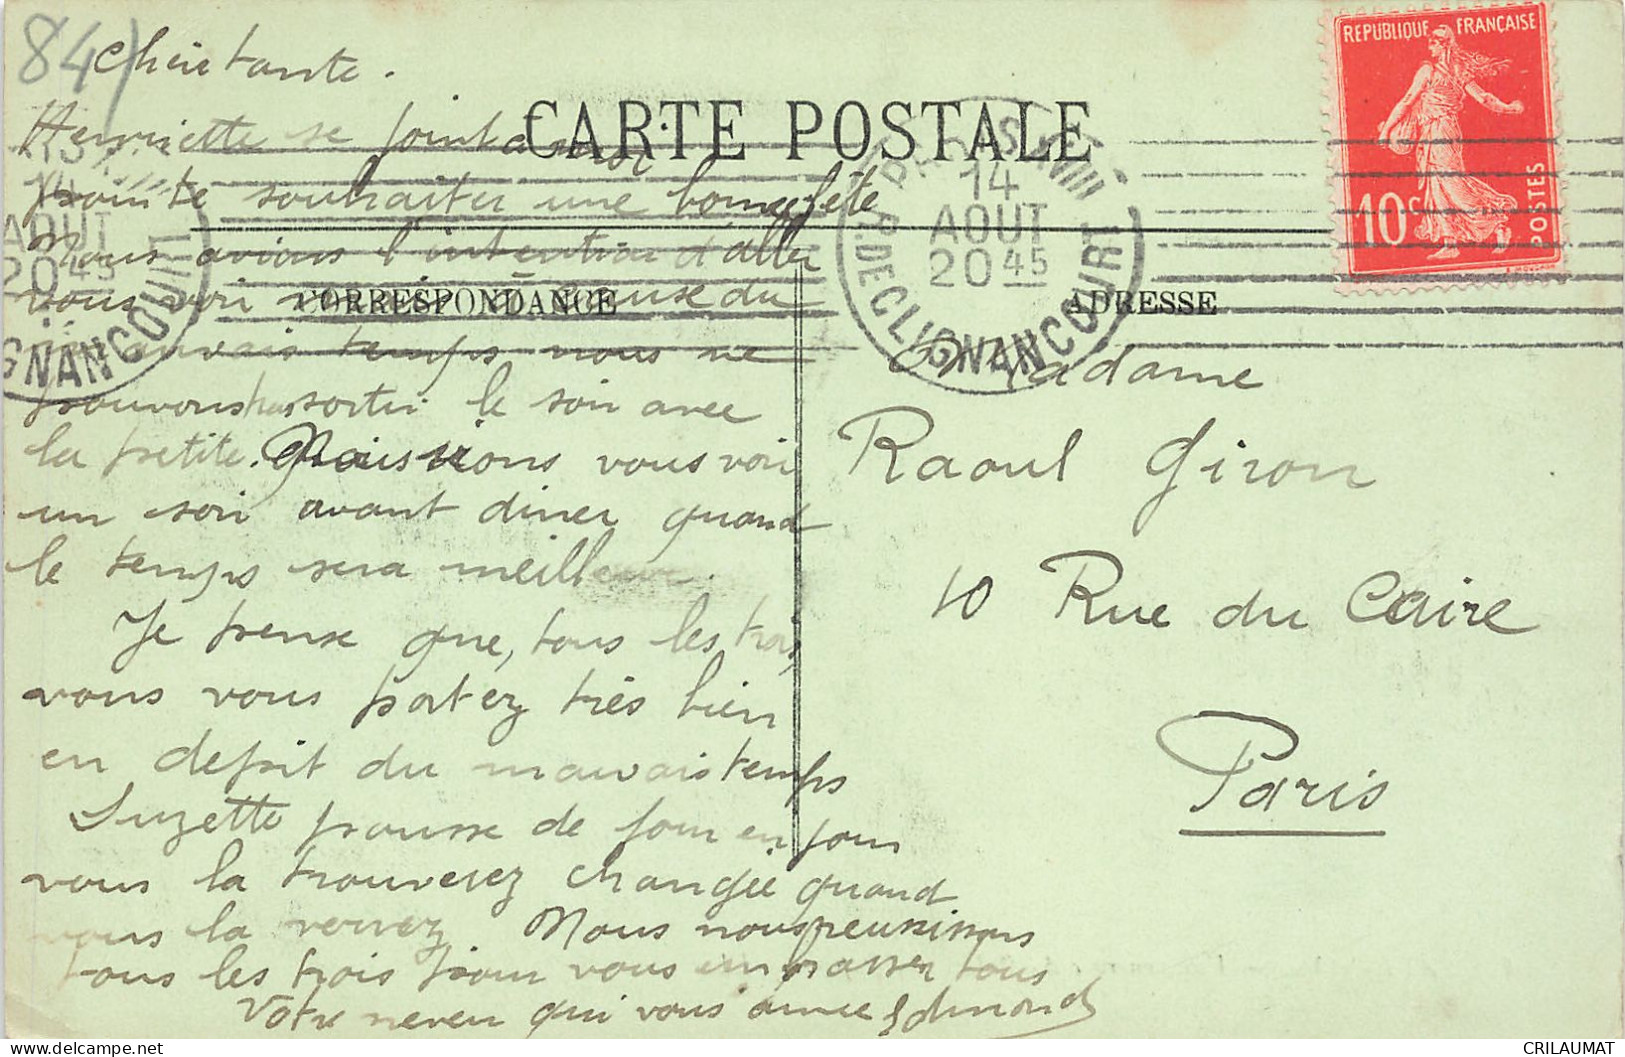 84)
Chère tante.
Henriette se joint a moi
pour te souhaiter une bonne fête
Nous avions l'intention d'aller
vous voir cause du
mauvais temps nous ne
pouvons pas sortir le soir avec
la petite. Mais irons vous voir
un soir avant diner quand
le temps sera meilleur.
Je pense que, tous les trois,
vous vous portez très bien
en depit du mauvais temps
Suzette pousse de jour en jour
vous la trouverez changée quand
vous la verrez. Nous nous réunissons
tous les trois pour vous embrasser tous
Votre neveu qui vous aime Edmond
CARTE POSTALE
CORRESPONDANCE
ADRESSE
Madame
Raoul Giron
10 Rue du Caire
Paris
REPUBLIQUE FRANÇAISE
10c
POSTES
PARIS XVIII
14
AOUT
20 45
R. DE CLIGNANCOURT
14
AOUT
20 45
GNANCOURT
CRILAUMAT